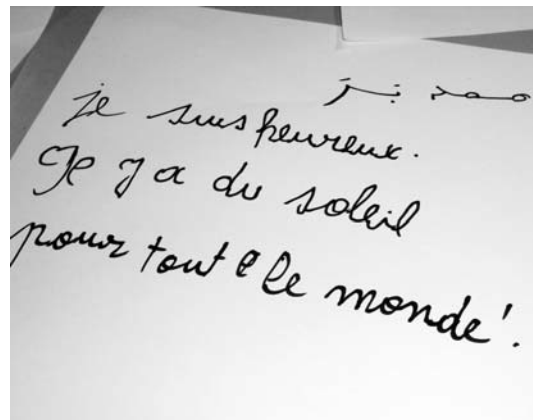 je suis heureux.
Je y a du soleil
pour tout le monde !